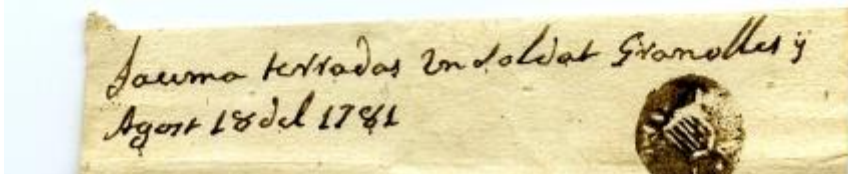 Jauma terradas Un soldat Granolles y
Agost 18 del 1781